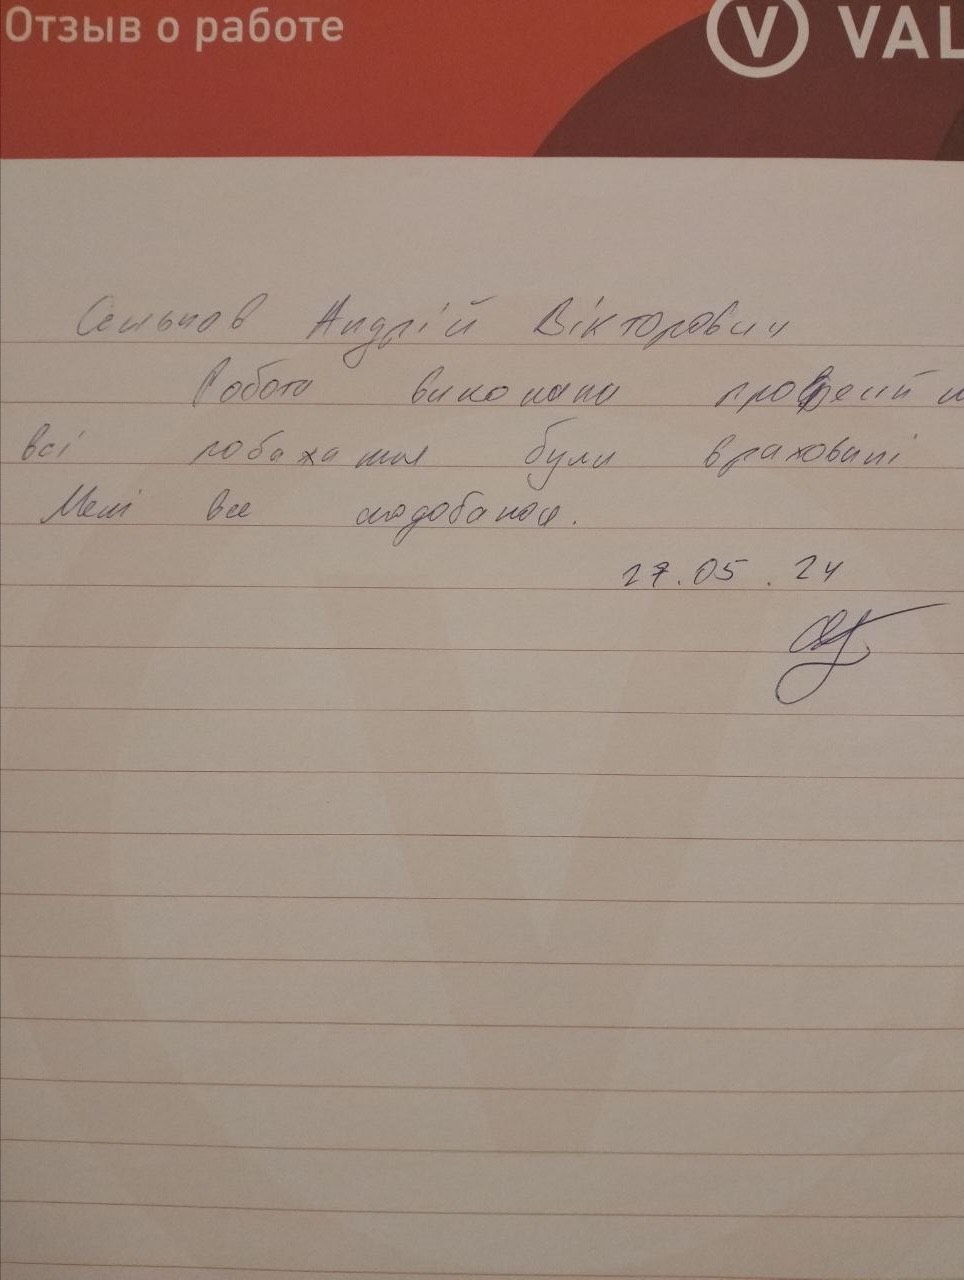 Отзыв о работе
V VAL
Андрій Вікторович
Робота виконана професійн
всі побажання були враховані
Мені все сподобалося.
27.05.24